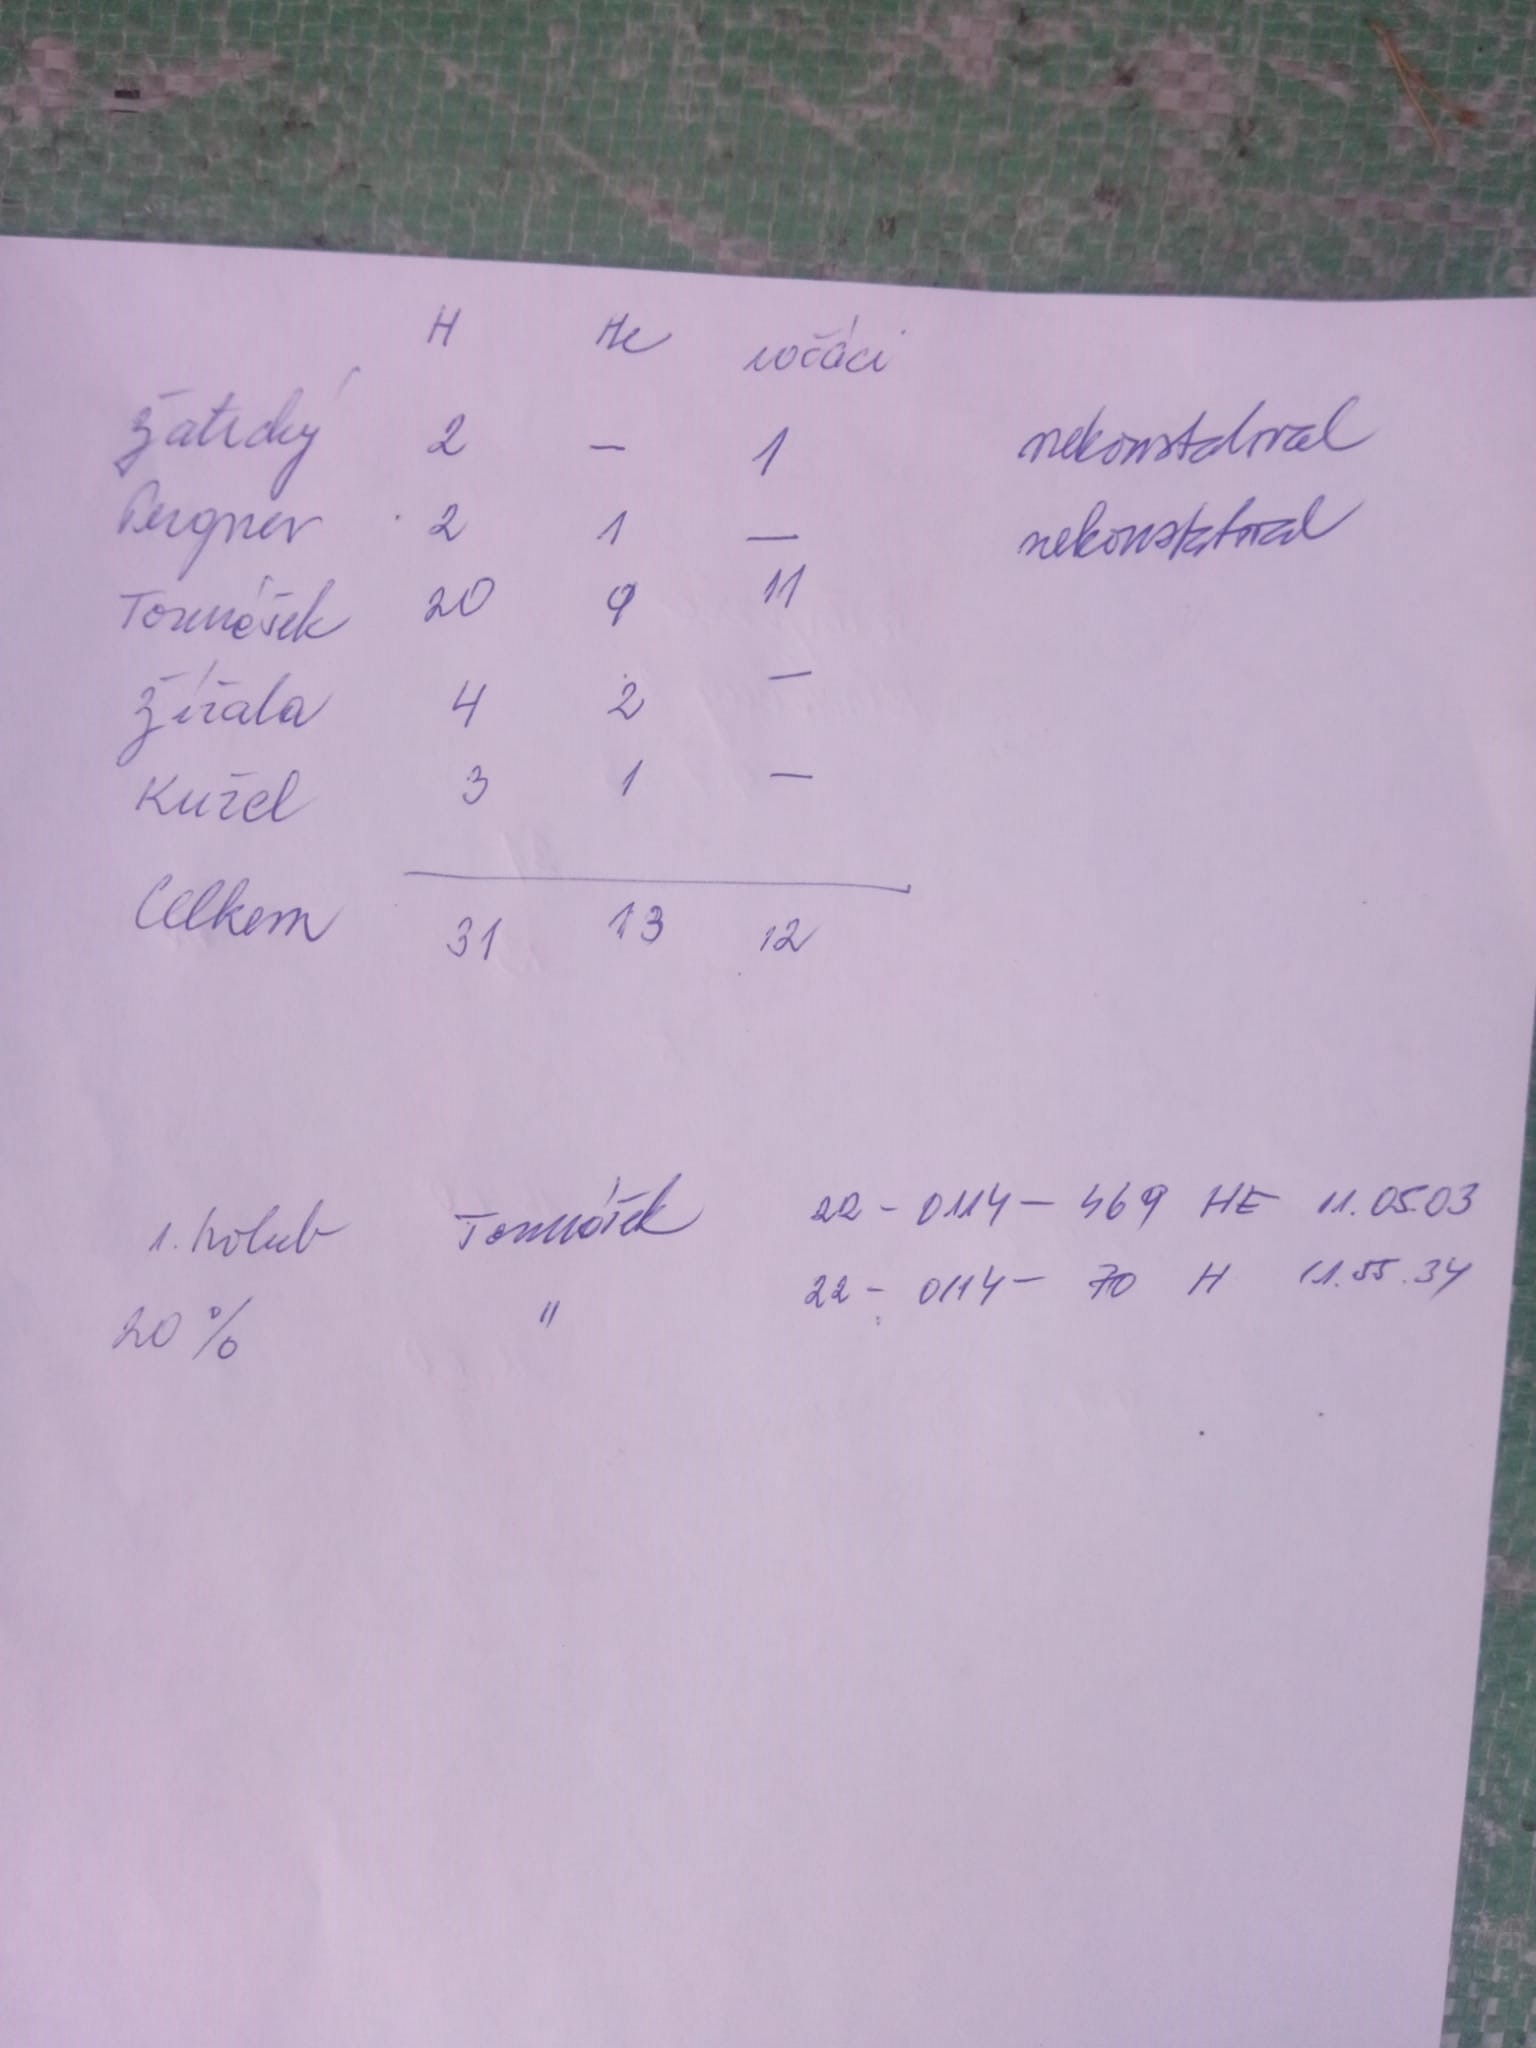 H He ročáci
Žatecký 2 – 1 nekonstatoval
Bergner 2 1 — nekonstatoval
Tomášek 20 9 11
Žížala 4 2 –
Kužel 3 1 –
Celkem 31 13 12
1. holub Tomášek 22 - 0114 - 469 HE 11.05.03
20 % " 22 - 0114 - 70 H 11.55.34